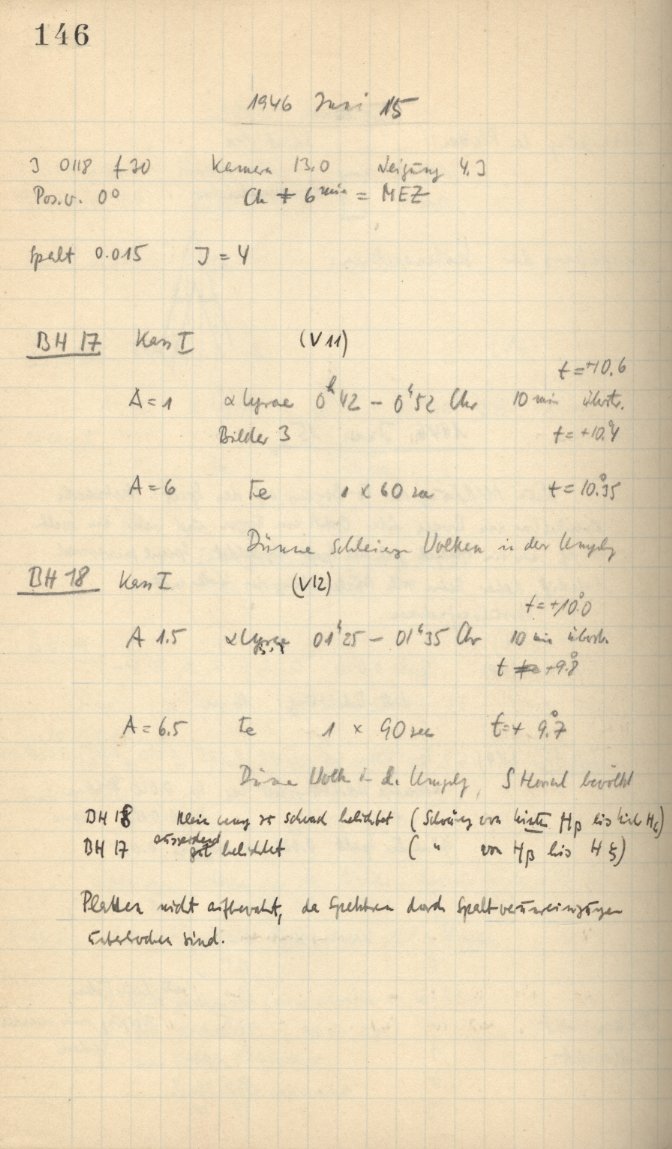 146
1946 Juni 15
J 0118 f 30 Kamera 13.0 Neigung 4.J
Pos.v. 0° Ch + 6 min = MEZ
Spalt 0.015 J = 4
BH 17 Kass I (V 11)
t = +10.6
A = 1 α Lyrae 0h 42 – 0h 52 Chr 10 min
Bilder 3 t = +10.°4
A = 6 Fe 1 x 60 sec t = 10.°35
Dünne Wolken in der Umgbg
BH 18 Kass I (V12)
t = +10.°0
A 1.5 α Lyrae 01h 25 – 01h 35 Chr 10 min
t +9.°8
A = 6.5 Fe 1 x 90 sec t = + 9.°7
Dünne Wolk in d. Umgbg, S bewölkt
BH 18 schwach belichtet ( von Hβ bis )
BH 17 ausreichend gut belichtet ( " von Hβ bis Hξ)
Platten nicht aufbewahrt, da Spektren durch Spaltverunreinigungen
sind.